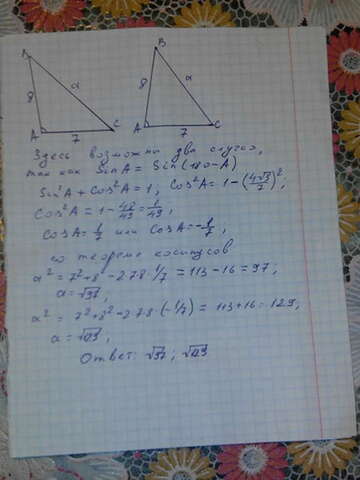 B
B
8
a
8
a
A
7
C
A
7
C
Здесь возможны два случая,
так как Sin A = Sin(180-A)
Sin²A + Cos²A = 1, Cos²A = 1 - (4√3/7)²,
Cos²A = 1 - 48/49 = 1/49,
Cos A = 1/7 или Cos A = -1/7,
по теореме косинусов
a² = 7² + 8² - 2·7·8·1/7 = 113 - 16 = 97;
a = √97;
a² = 7² + 8² - 2·7·8·(-1/7) = 113 + 16 = 129,
a = √129;
Ответ: √97; √129